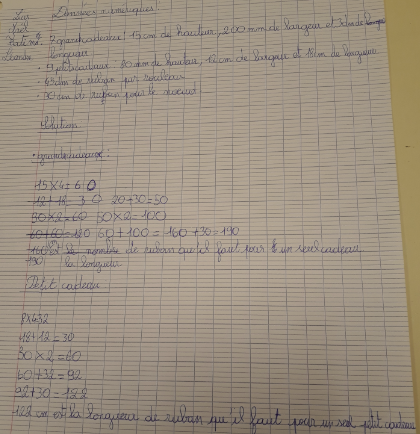 Données numériques
2 grands cadeaux : 15 cm de hauteur, 200 mm de largeur et 3 dm de
longueur
4 petits cadeaux : 80 mm de hauteur, 12 cm de largeur et 18 cm de longueur
de ruban par rouleau
30 cm de ruban pour le noeud
Solution
grands cadeaux :
15 X 4 = 60
12 + 18 = 30 20 + 30 = 50
30 X 2 = 60 50 X 2 = 100
60 + 60 = 120 60 + 100 = 160 + 30 = 190
190 la longueur de ruban qu'il faut pour un seul cadeau
Petit cadeau
8 X 4 = 32
18 + 12 = 30
30 X 2 = 60
60 + 32 = 92
92 + 30 = 122
122 cm est la longueur de ruban qu'il faut pour un seul petit cadeau